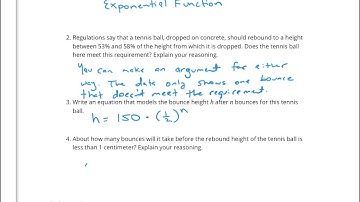 Exponential Function
2. Regulations say that a tennis ball, dropped on concrete, should rebound to a height
between 53% and 58% of the height from which it is dropped. Does the tennis ball
here meet this requirement? Explain your reasoning.
You can make an argument for either
way. The date only shows one bounce
that doesn't meet the requirement.
3. Write an equation that models the bounce height h after n bounces for this tennis
ball.
h = 150 · (1/2)^n
4. About how many bounces will it take before the rebound height of the tennis ball is
less than 1 centimeter? Explain your reasoning.